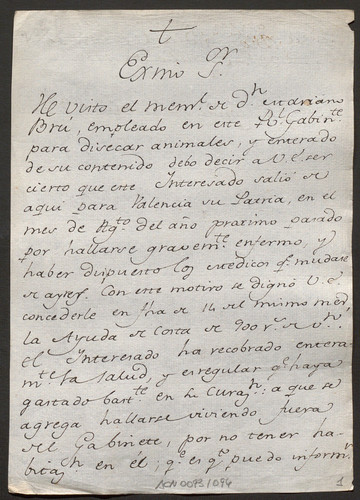 +
Exmo Sr.
He visto el meml. de Dn. Mariano
Brú, empleado en este Rl. Gabinte.
para disecar animales, y enterado
de su contenido debo decir a V.E. ser
cierto que este Interesado salió de
aqui para Valencia su Patria, en el
mes de Agto. del año proximo pasado
por hallarse gravemte. enfermo, y
haber dispuesto los medicos qe. mudase
de ayres. Con este motivo se dignó V.E.
concederle en fha. de 14 del mismo mes
la Ayuda de Costa de 900 rs. de vn.
el Interesado ha recobrado entera-
mte. la salud, y es regular qe. haya
gastado baste. en su Curacn.: a que se
agrega hallarse viviendo fuera
del Gabinete, por no tener ha-
bitacn. en él; qe. es qto. puedo informr.
ACN0093/094
1